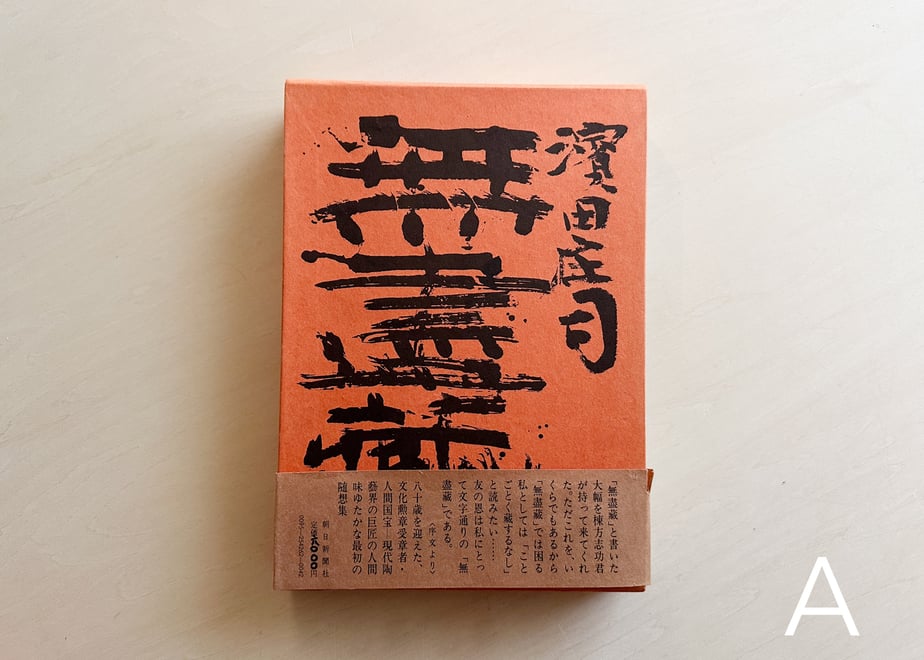 濱田庄司
無盡蔵
「無盡蔵」と書いた
大幅を棟方志功君
が持って来てくれ
た。ただこれを、い
くらでもあるから
「無盡蔵」では困る
私としては「こと
ごとく蔵するなし」
と読みたい……
友の恩は私にとっ
て文字通りの「無
盡蔵」である。
〈序文より〉
八十歳を迎えた、
文化勲章受章者・
人間国宝―現代陶
藝界の巨匠の人間
味ゆたかな最初の
随想集
朝日新聞社
定価
A